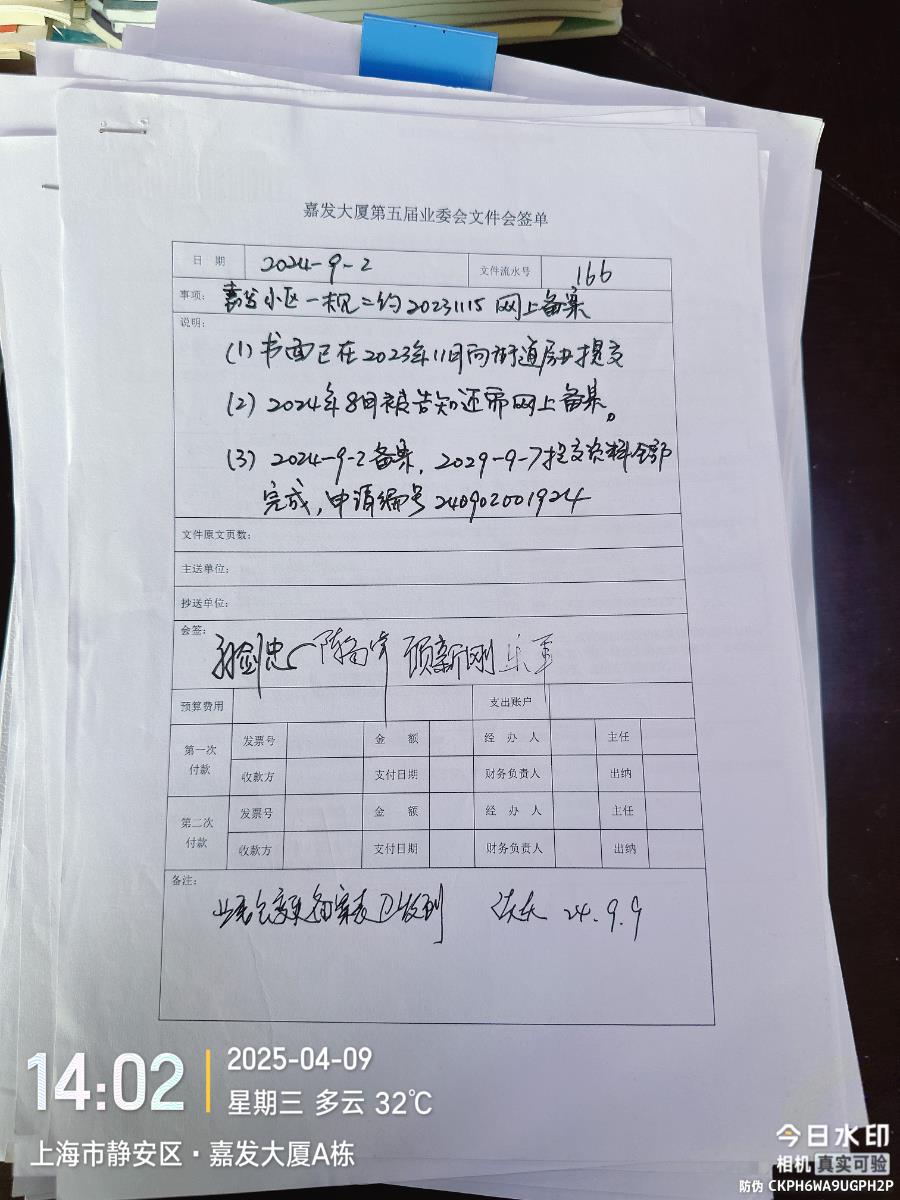 嘉发大厦第五届业委会文件会签单
日 期 2024-9-2 文件流水号 166
事项: 嘉发小区一规二约20231115 网上备案
说明:
(1) 书面已在2023年11月向街道房办提交
(2) 2024年8月被告知还需网上备案。
(3) 2024-9-2备案, 2029-9-7提交资料全部
完成, 申请编号 240902001924
文件原文页数:
主送单位:
抄送单位:
会签:
顾新刚
预算费用 支出账户
第一次付款 发票号 金 额 经 办 人 主任
收款方 支付日期 财务负责人 出纳
第二次付款 发票号 金 额 经 办 人 主任
收款方 支付日期 财务负责人 出纳
备注:
备案表已收到 24.9.9
14:02 2025-04-09
星期三 多云 32℃
上海市静安区·嘉发大厦A栋
今日水印
相机 真实可验
防伪 CKPH6WA9UGPH2P